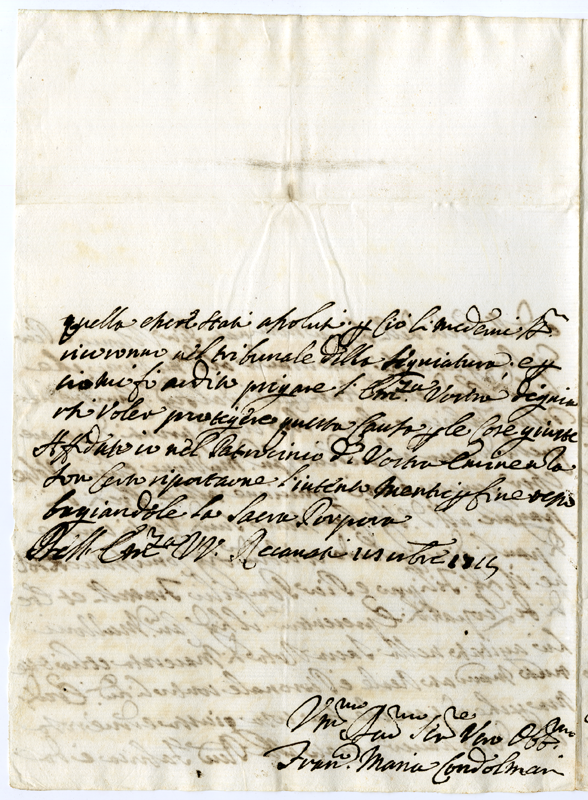 quella che res. stati asoluti, p Ciò li medemi Sr.
ricorono nel tribunale della Signiatura, e p
ciò mi fò ardito pregare l'Em.za Vostra degnia
rsi voler protegere questa Causa p le Cose giuste
Affidato io nel Patrocinio di Vostra Eminenza
son Certo riportarne l'intento Mentre p fine resto
bagiandole la Sacra Porpora
Dell Em.za V. Recanati 1715
Um.mo Ser.re Vero Obb.mo
Fran.o Maria Condolmari